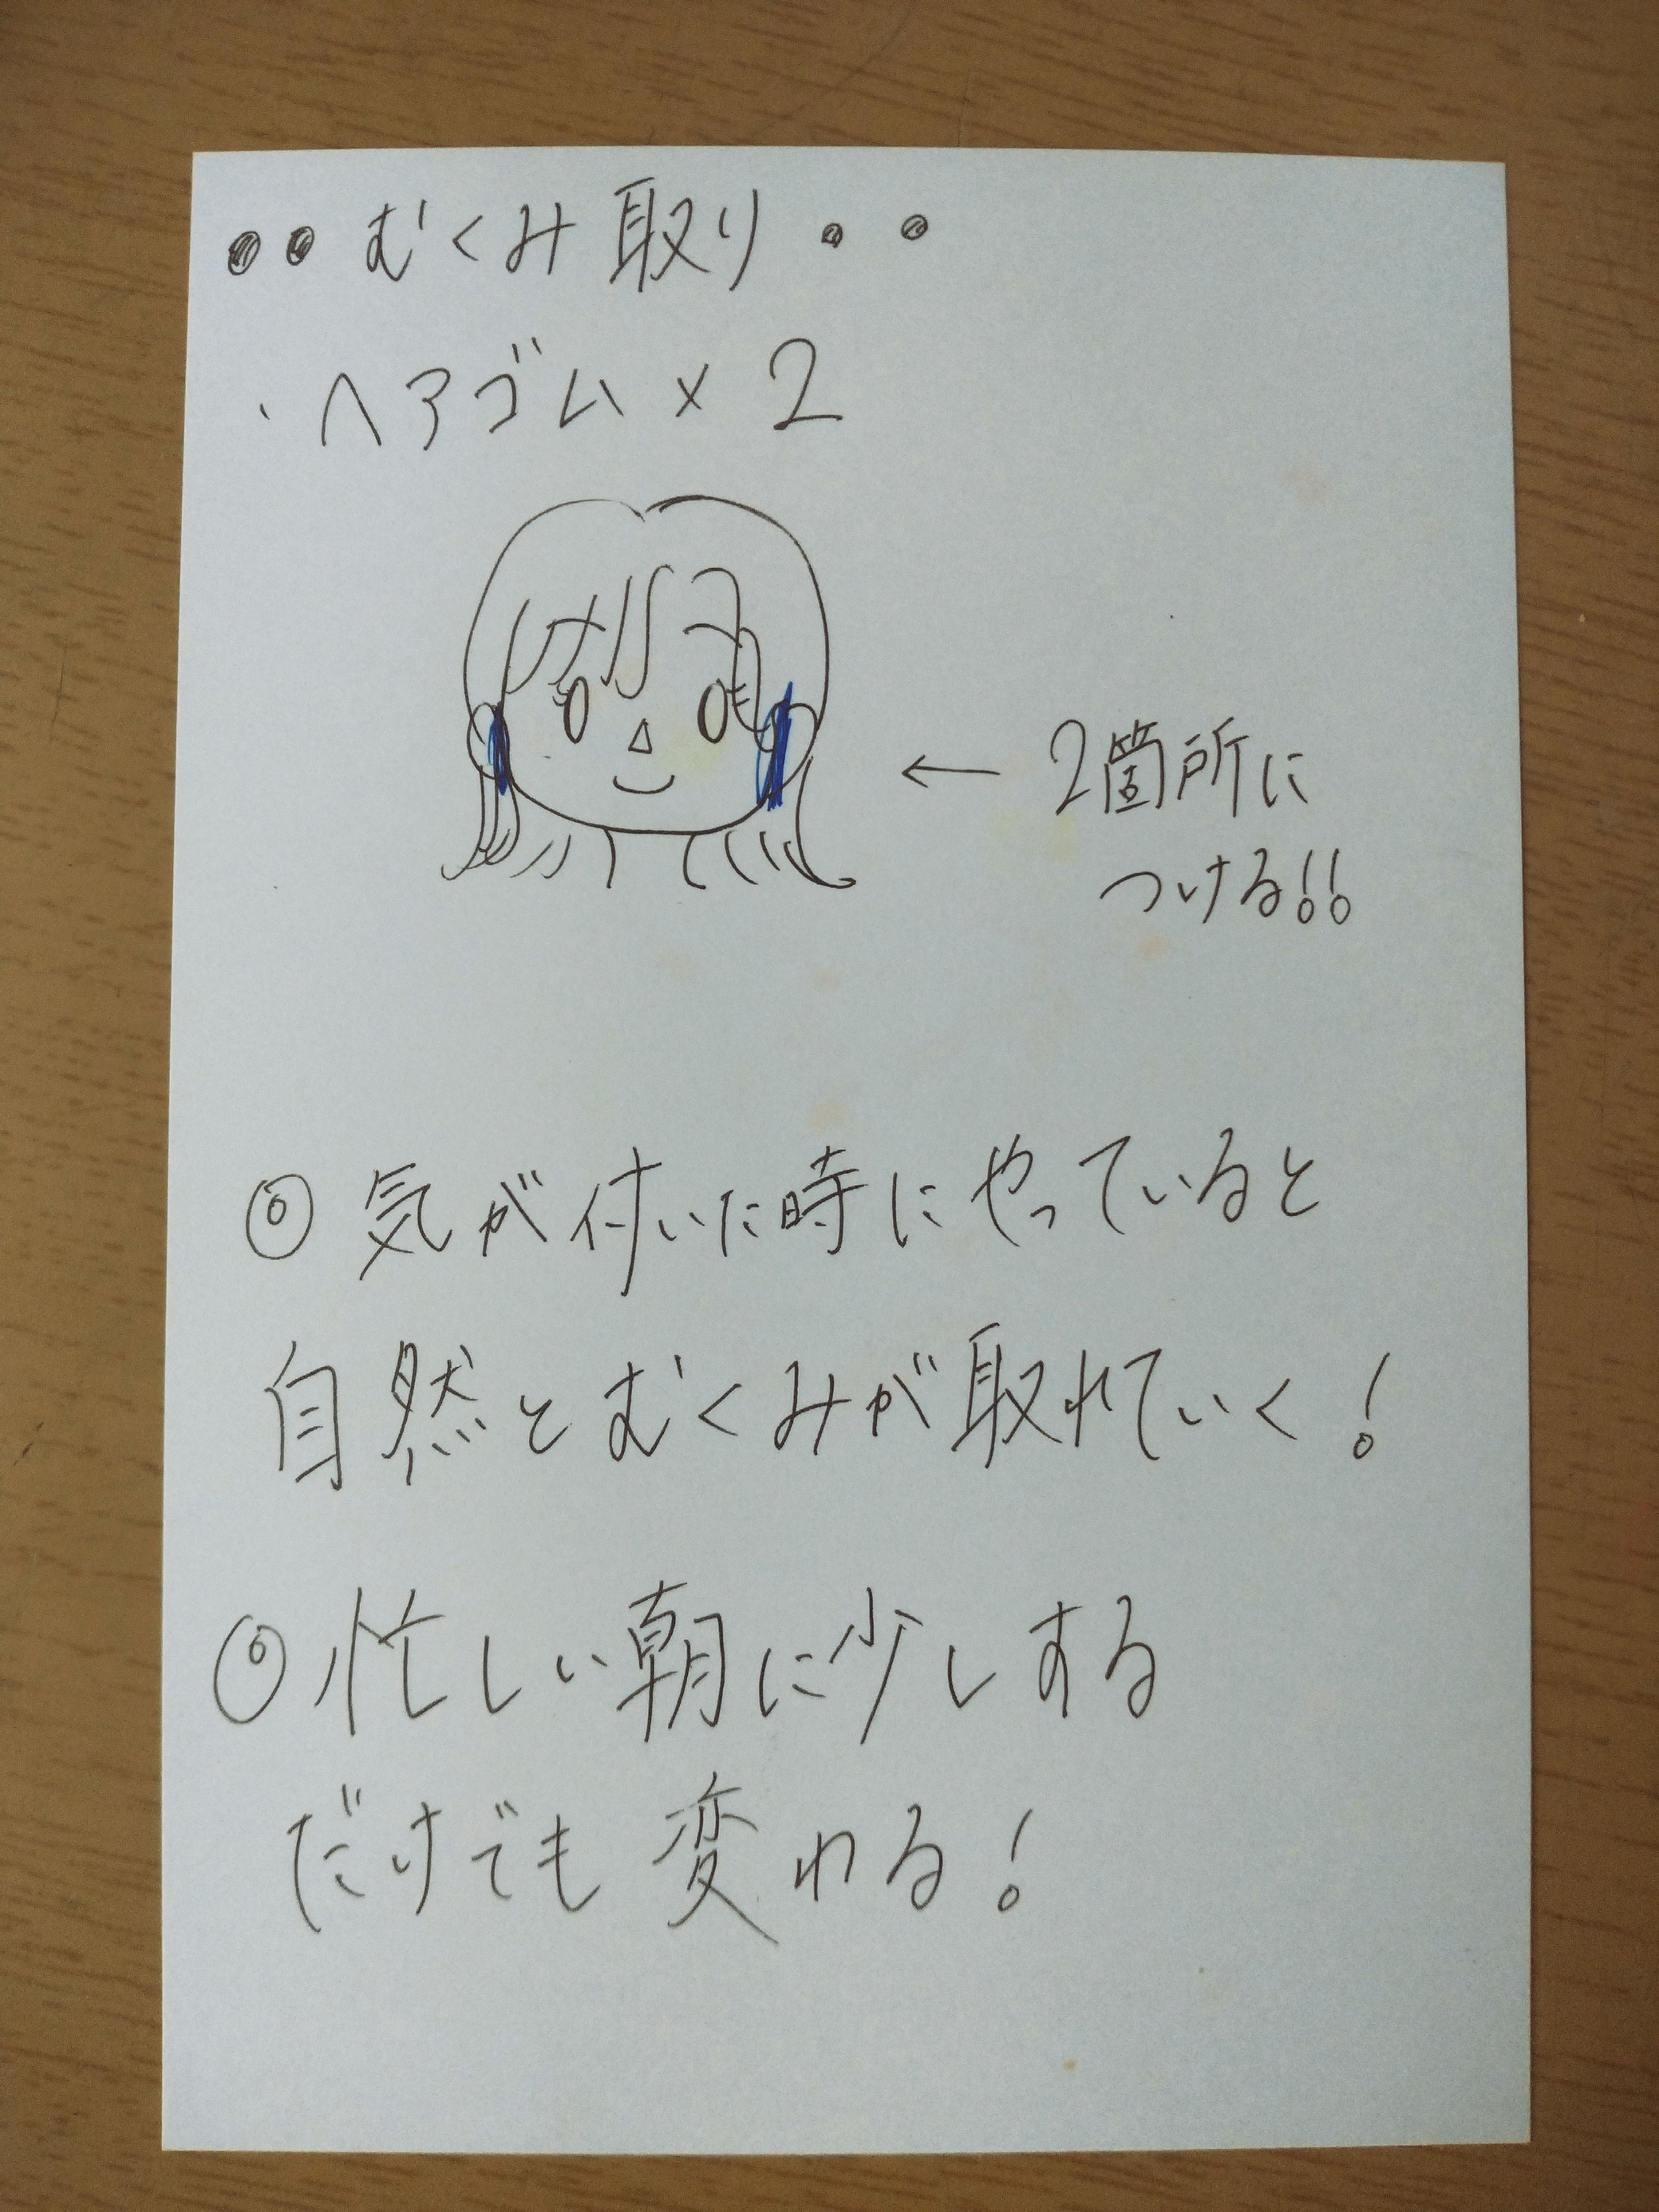 ●●むくみ取り・・
・ヘアゴム×2
←2箇所に
つける!!
◎気が付いた時にやっていると
自然とむくみが取れていく!
◎忙しい朝に少しする
だけでも変わる!